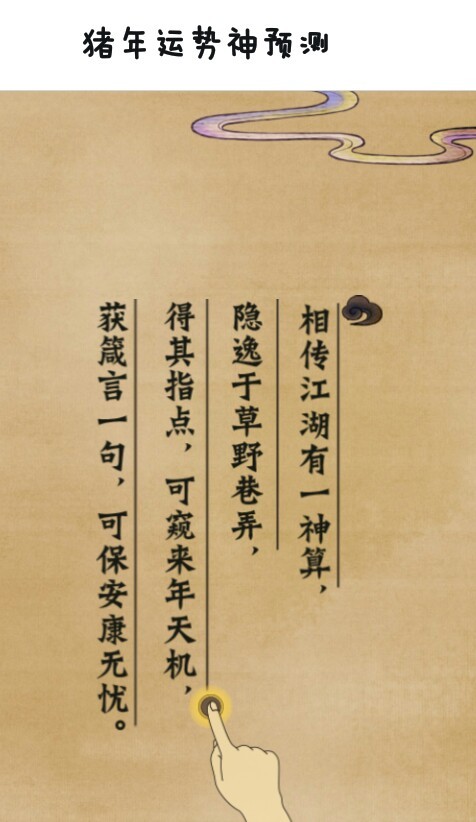 猪年运势神预测
相传江湖有一神算，
隐逸于草野巷弄，
得其指点，可窥来年天机，
获箴言一句，可保安康无忧。